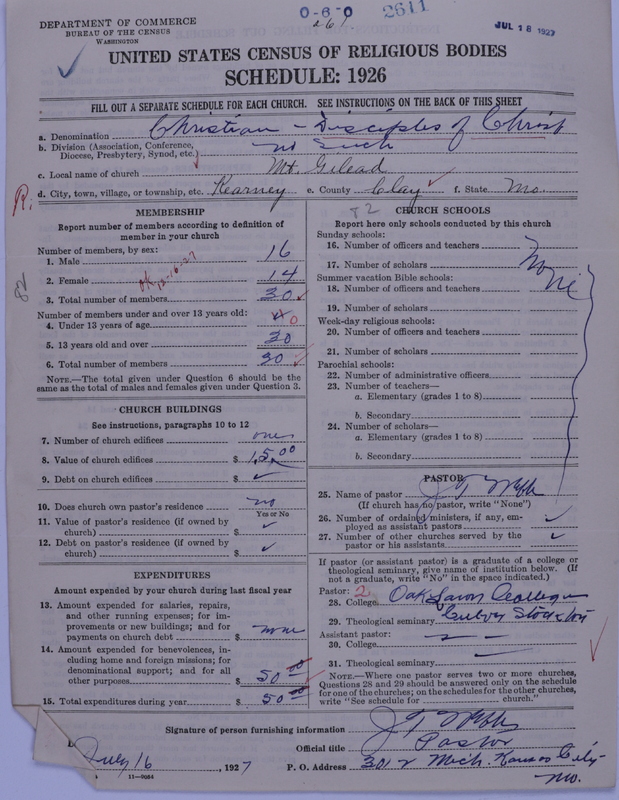 DEPARTMENT OF COMMERCE
BUREAU OF THE CENSUS
WASHINGTON
0-6-0
267.
2611
JUL 18 1927
UNITED STATES CENSUS OF RELIGIOUS BODIES
SCHEDULE: 1926
FILL OUT A SEPARATE SCHEDULE FOR EACH CHURCH. SEE INSTRUCTIONS ON THE BACK OF THIS SHEET
a. Denomination Christian - Disciples of Christ
b. Division (Association, Conference, Diocese, Presbytery, Synod, etc.) no such
c. Local name of church Mt. Gilead
d. City, town, village, or township, etc. Kearney e. County Clay f. State Mo.
R.
82
82
MEMBERSHIP
Report number of members according to definition of
member in your church
Number of members, by sex:
1. Male 16
2. Female 14
OK 12-16-27
3. Total number of members 30
Number of members under and over 13 years old:
4. Under 13 years of age 0
5. 13 years old and over 30
6. Total number of members 30
NOTE.—The total given under Question 6 should be the
same as the total of males and females given under Question 3.
CHURCH BUILDINGS
See instructions, paragraphs 10 to 12
7. Number of church edifices one
8. Value of church edifices $ 1,500
9. Debt on church edifices $
10. Does church own pastor's residence no
Yes or No
11. Value of pastor's residence (if owned by
church) $
12. Debt on pastor's residence (if owned by
church) $
EXPENDITURES
Amount expended by your church during last fiscal year
13. Amount expended for salaries, repairs,
and other running expenses; for im-
provements or new buildings; and for
payments on church debt $ none
14. Amount expended for benevolences, in-
cluding home and foreign missions; for
denominational support; and for all
other purposes $ 50 00
15. Total expenditures during year $ 50 00
CHURCH SCHOOLS
Report here only schools conducted by this church
Sunday schools:
16. Number of officers and teachers
17. Number of scholars
None
Summer vacation Bible schools:
18. Number of officers and teachers
19. Number of scholars
Week-day religious schools:
20. Number of officers and teachers
21. Number of scholars
Parochial schools:
22. Number of administrative officers
23. Number of teachers—
a. Elementary (grades 1 to 8)
b. Secondary
24. Number of scholars—
a. Elementary (grades 1 to 8)
b. Secondary
PASTOR
25. Name of pastor J T Webb
(If church has no pastor, write "None")
26. Number of ordained ministers, if any, em-
ployed as assistant pastors
27. Number of other churches served by the
pastor or his assistants
If pastor (or assistant pastor) is a graduate of a college or
theological seminary, give name of institution below. (If
not a graduate, write "No" in the space indicated.)
Pastor: 2
28. College Oak College
29. Theological seminary Culver Stockton
Assistant pastor:
30. College
31. Theological seminary
NOTE.—Where one pastor serves two or more churches,
Questions 28 and 29 should be answered only on the schedule
for one of the churches; on the schedules for the other churches,
write "See schedule for church."
Signature of person furnishing information J T Webb
Official title Pastor
July 16, 1927
P. O. Address 3012 Mich. Kansas City
Mo.
11-9064